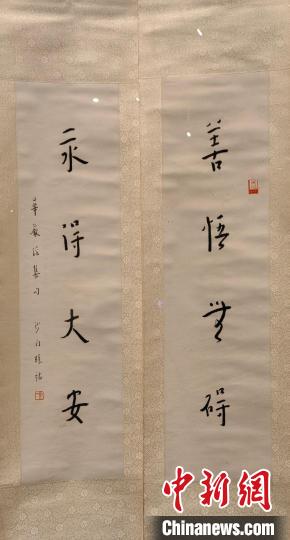 善悟無碍
永得大安
華嚴經集句
沙門
中新网
Chinanews.com